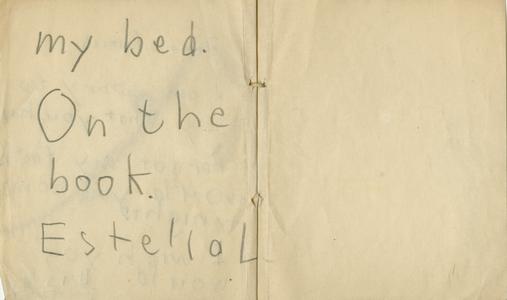 my bed.
On the
book.
Estella L